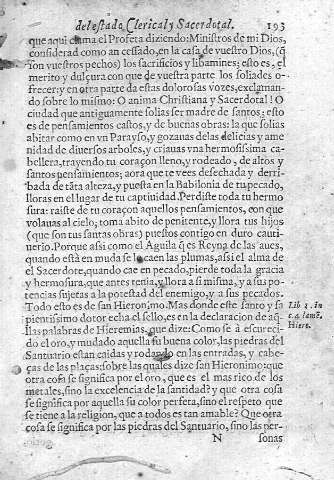 del estado Clerical y Sacerdotal. 193
que aqui clama el Profeta diziendo: Ministros de mi Dios,
considerad como an cessado, en la casa de vuestro Dios, (q̃
son vuestros pechos) los sacrificios y libamines; esto es, el
merito y dulçura con que de vuestra parte los soliades ofre-
cer: y en otra parte da estas dolorosas vozes, exclaman-
do sobre lo mismo: O anima Christiana y Sacerdotal! O
ciudad que antiguamente solias ser madre de santos; esto
es de pensamientos castos, y de buenas obras: la que solias
abitar como en vn Parayso, y gozauas de las delicias y ame
nidad de diuersos arboles, y criauas vna hermosissima ca-
bellera, trayendo tu coraçon lleno, y rodeado, de altos y
santos pensamientos; aora que te vees desechada y derri-
bada de tãta alteza, y puesta en la Babilonia de tu pecado,
lloras en el lugar de tu captiuidad. Perdiste toda tu hermo
sura: raiste de tu coraçon aquellos pensamientos, con que
volauas al cielo; toma abito de penitente, y llora tus hijos
(que son tus santas obras) puestos contigo en duro cauti-
uerio. Porque assi como el Aguila q̃ es Reyna de las aues,
quando està en muda se le caen las plumas, assi el alma de
el Sacerdote, quando cae en pecado, pierde toda la gracia
y hermosura, que antes tenia, y llora a si misma, y a sus po-
tencias sujetas a la potestad del enemigo, y a sus pecados.
Todo esto es de san Hieronimo. Mas donde este santo y sa
pientissimo dotor echa el sello, es en la declaracion de aq̃-
llas palabras de Hieremias, que dize: Como se à escureci-
do el oro, y mudado aquella su buena color, las piedras del
Santuario estan caidas y rodando en las entradas, y cabe-
ças de las plaças: sobre las quales dize san Hieronimo: que
otra cosa se significa por el oro, que es el mas rico de los
metales, sino la excelencia de la santidad? y que otra cosa
se significa por aquella su color perfeta, sino el respeto que
se tiene a la religion, que a todos es tan amable? Que otra
cosa se significa por las piedras del Santuario, sino las per-
N sonas
Lib 2. in
Hiere.